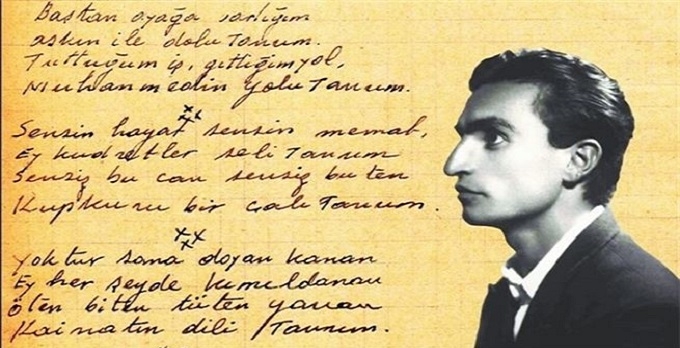 Baştan ayağa varlığım
aşkın ile dolu Tanrım.
Tuttuğum iş, gittiğim yol,
Muhammedin yolu Tanrım.
xxx
Sensin hayat sensin memat,
Ey kudretler seli Tanrım
Sensiz bu can sensiz bu ten
Kupkuru bir çalı Tanrım.
xxx
Yoktur sana doyan kanan
Ey her şeyde kımıldanan
Öten biten tüten yanan
Kainatın dili Tanrım.